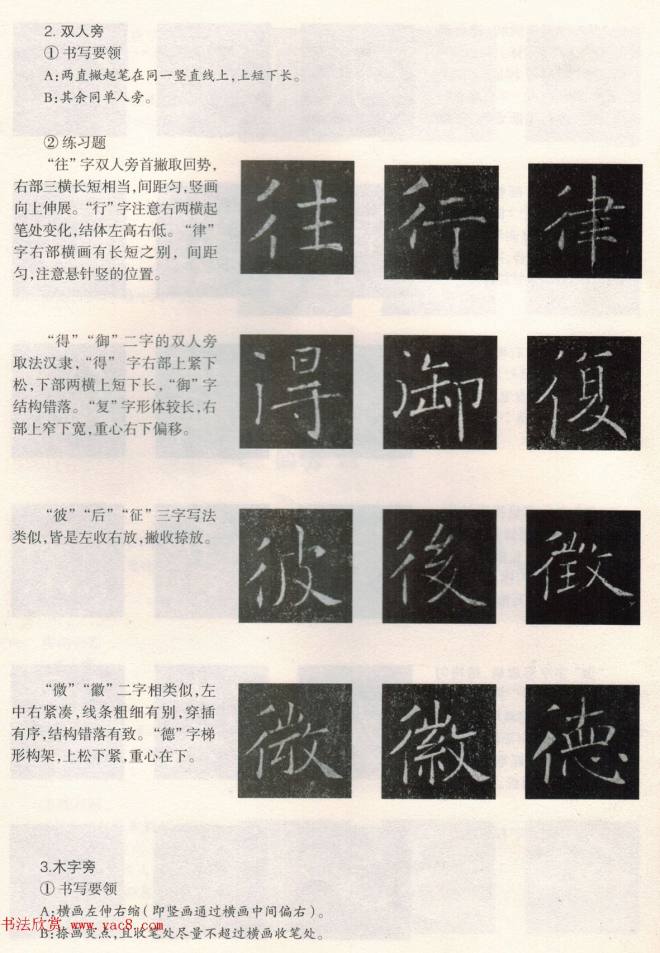 2. 双人旁
① 书写要领
A:两直撇起笔在同一竖直线上,上短下长。
B:其余同单人旁。
② 练习题
“往”字双人旁首撇取回势,
右部三横长短相当,间距匀,竖画
向上伸展。“行”字注意右两横起
笔处变化,结体左高右低。“律”
字右部横画有长短之别, 间距
匀,注意悬针竖的位置。
往 行 律
“得”“御”二字的双人旁
取法汉隶,“得” 字右部上紧下
松,下部两横上短下长,“御”字
结构错落。“复”字形体较长,右
部上窄下宽,重心右下偏移。
得 御 復
“彼”“后”“征”三字写法
类似,皆是左收右放,撇收捺放。
彼 後 徵
“微”“徽”二字相类似,左
中右紧凑,线条粗细有别,穿插
有序,结构错落有致。“德”字梯
形构架,上松下紧,重心在下。
微 徽 德
3.木字旁
① 书写要领
A:横画左伸右缩(即竖画通过横画中间偏右)。
B:捺画变点,且收笔处尽量不超过横画收笔处。
书法欣赏 www.yac8.com